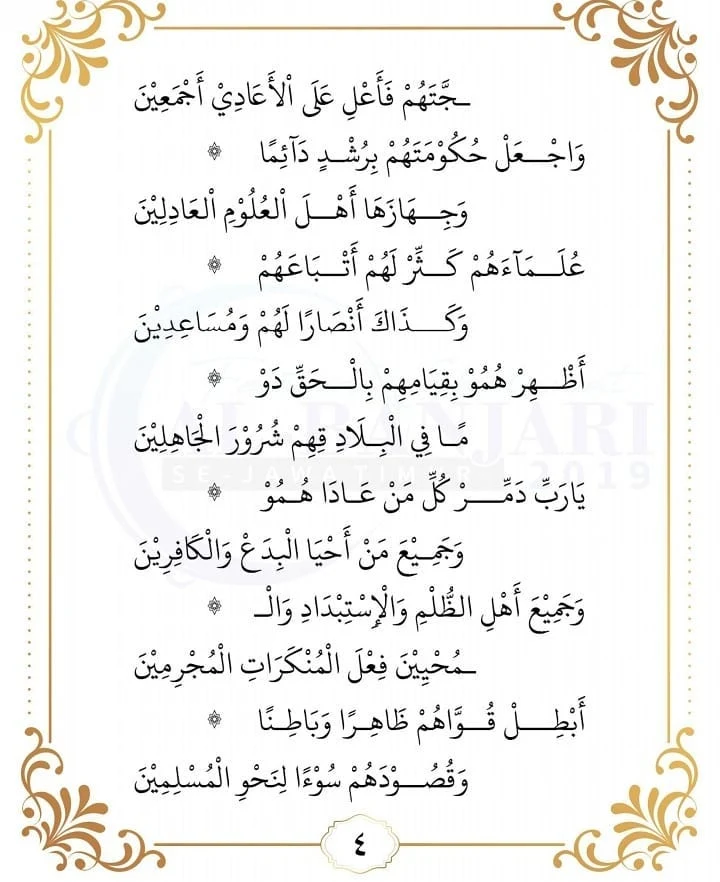 ـجَّتَهُمْ فَأَعْلِ عَلَى اْلأَعَادِيْ أَجْمَعِيْنَ
وَاجْـــعَلْ حُكُوْمَتَهُمْ بِرُشْـدٍ دَآئِمًا ۞
وَجِـــهَازَهَا أَهْـــلَ اْلعُلُوْمِ اْلعَادِلِيْنَ
عُلَـــمَآءَهُمْ كَـــثِّرْ لَهُمْ أَتْـــبَاعَهُمْ ۞
وَكَـــذَاكَ أَنْصَارًا لَهُمْ وَمُسَاعِدِيْنَ
أَظْـــهِرْ هُمُوْ بِقِيَامِهِمْ بِالْـــحَقِّ دَوْ ۞
مًـا فِي الْبِـلَادِ قِهِمْ شُرُوْرَ الْجَاهِلِيْنَ
AL BANJARI
SE-JAWA TIMUR 2019
يَارَبِّ دَمِّـــرْ كُلَّ مَنْ عَـادَا هُـمُوْ ۞
وَجَمِـيْعَ مَنْ أَحْيَا الْبِدَعْ وَالْكَافِرِيْنَ
وَجَمِيْعَ أَهْلِ الظُّلْمِ وَالْإِسْتِبْدَادِ وَالْـ ۞
ـمُحْيِيْنَ فِعْلَ الْمُنْكَرَاتِ الْمُجْرِمِيْنَ
أَبْطِـــلْ قُـوَّاهُمْ ظَاهِـرًا وَبَاطِـنًا ۞
وَقُصُـــوْدَهُمْ سُوْءًا لِنَحْوِ الْمُسْلِمِيْنَ
٤